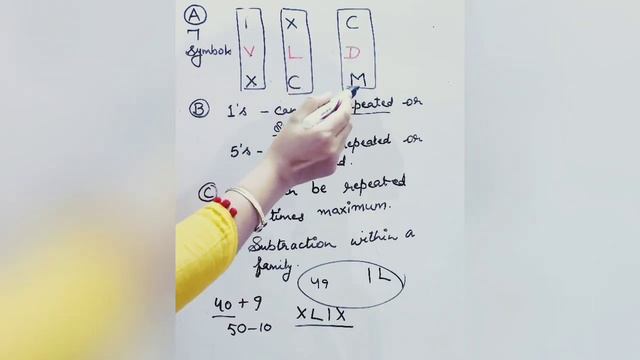 A I X C
7
Symbols V L D
X C M
B 1's - repeated or
5's - repeated or
C be repeated
times maximum.
Subtraction within a
family.
49 IL
40 + 9 XLIX
50-10